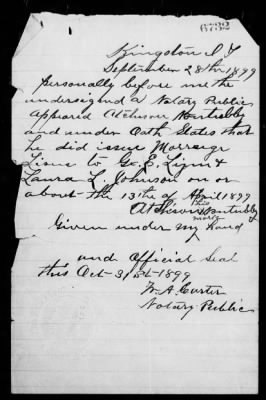 6732
Kingston I T
September 28th 1899
personally before me the
undersignd a Notary Public
Appeared
and under Oath States that
he did issue Marraige
Lisne to Geo, E, &
Laura L Johnson on or
about the 13th of April 1899
his
mark
Given under my hand
and Official Seal
this Oct 31st 1899
W. A. Carter
Notary Public